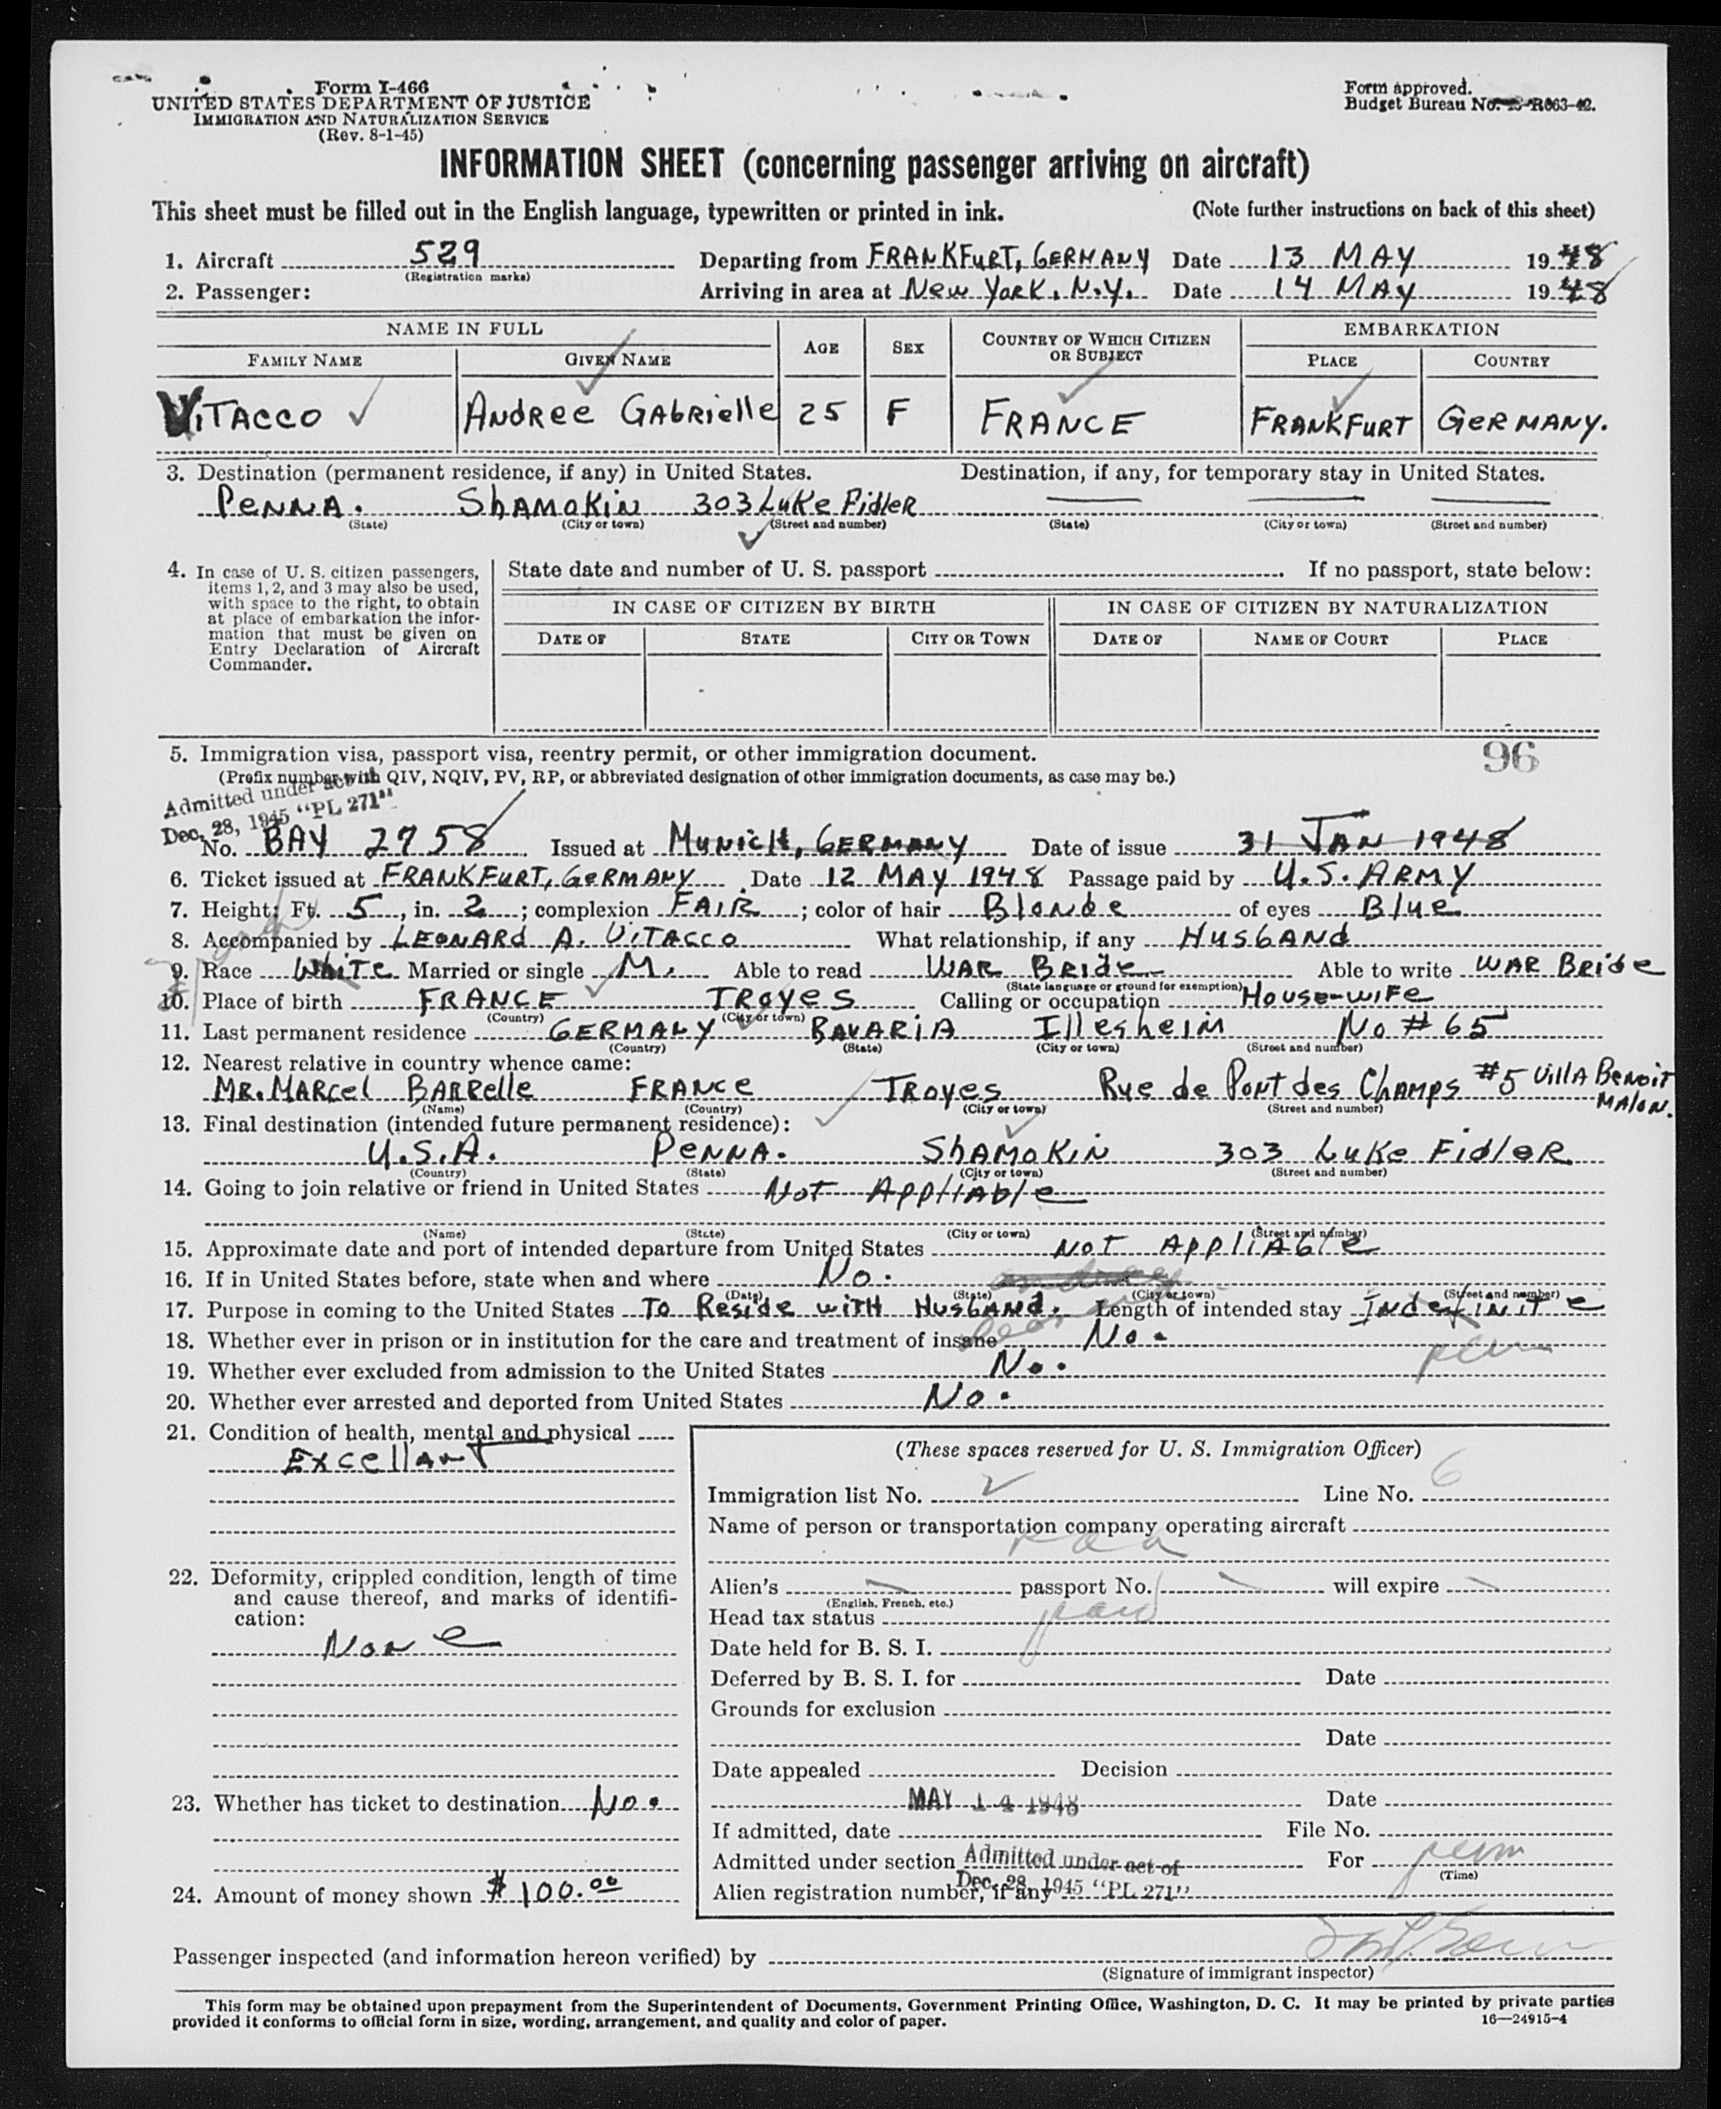 Form I-466
UNITED STATES DEPARTMENT OF JUSTICE
IMMIGRATION AND NATURALIZATION SERVICE
(Rev. 8-1-45)
Form approved.
Budget Bureau No. R063-42.
INFORMATION SHEET (concerning passenger arriving on aircraft)
This sheet must be filled out in the English language, typewritten or printed in ink. (Note further instructions on back of this sheet)
1. Aircraft 529 Departing from FRANKFURT, GERMANY Date 13 MAY 1948
(Registration marks)
2. Passenger: Arriving in area at New York, N.Y. Date 14 MAY 1948
NAME IN FULL AGE SEX COUNTRY OF WHICH CITIZEN OR SUBJECT EMBARKATION
FAMILY NAME GIVEN NAME PLACE COUNTRY
VITACCO ANDREE GABRIELLE 25 F FRANCE FRANKFURT GERMANY.
3. Destination (permanent residence, if any) in United States. Destination, if any, for temporary stay in United States.
PENNA. SHAMOKIN 303 LUKE FIDLER
(State) (City or town) (Street and number) (State) (City or town) (Street and number)
4. In case of U. S. citizen passengers, items 1, 2, and 3 may also be used, with space to the right, to obtain at place of embarkation the information that must be given on Entry Declaration of Aircraft Commander.
State date and number of U. S. passport . If no passport, state below:
IN CASE OF CITIZEN BY BIRTH IN CASE OF CITIZEN BY NATURALIZATION
DATE OF STATE CITY OR TOWN DATE OF NAME OF COURT PLACE
5. Immigration visa, passport visa, reentry permit, or other immigration document. 96
(Prefix number with QIV, NQIV, PV, RP, or abbreviated designation of other immigration documents, as case may be.)
Admitted under act of
Dec. 28, 1945 "PL 271"
No. BAY 2758 Issued at MUNICH, GERMANY Date of issue 31 JAN 1948
6. Ticket issued at FRANKFURT, GERMANY Date 12 MAY 1948 Passage paid by U.S. ARMY
7. Height: Ft. 5, in. 2; complexion FAIR; color of hair BLONDE of eyes BLUE
8. Accompanied by LEONARD A. VITACCO What relationship, if any HUSBAND
9. Race WHITE Married or single M. Able to read WAR BRIDE Able to write WAR BRIDE
(State language or ground for exemption)
10. Place of birth FRANCE TROYES Calling or occupation HOUSE-WIFE
(Country) (City or town)
11. Last permanent residence GERMANY BAVARIA Illesheim No # 65
(Country) (State) (City or town) (Street and number)
12. Nearest relative in country whence came:
MR. MARCEL BARRELLE FRANCE TROYES Rue de Pont des Champs #5 Villa Benoit Malon.
(Name) (Country) (City or town) (Street and number)
13. Final destination (intended future permanent residence):
U.S.A. PENNA. SHAMOKIN 303 LUKE FIDLER
(Country) (State) (City or town) (Street and number)
14. Going to join relative or friend in United States NOT APPLIABLE
(Name) (State) (City or town) (Street and number)
15. Approximate date and port of intended departure from United States NOT APPLIABLE
16. If in United States before, state when and where No.
(Date) (State) (City or town) (Street and number)
17. Purpose in coming to the United States TO RESIDE WITH HUSBAND. Length of intended stay INDEFINITE
18. Whether ever in prison or in institution for the care and treatment of insane No.
19. Whether ever excluded from admission to the United States No.
20. Whether ever arrested and deported from United States No.
21. Condition of health, mental and physical
EXCELLANT
22. Deformity, crippled condition, length of time and cause thereof, and marks of identification:
NONE
23. Whether has ticket to destination No.
24. Amount of money shown $100.00
(These spaces reserved for U. S. Immigration Officer)
Immigration list No. Line No. 6
Name of person or transportation company operating aircraft
Alien's passport No. will expire
(English, French, etc.)
Head tax status paid
Date held for B. S. I.
Deferred by B. S. I. for Date
Grounds for exclusion
Date
Date appealed Decision
MAY 14 1948 Date
If admitted, date File No.
Admitted under section Admitted under act of For perm
(Time)
Alien registration number, if any Dec. 28, 1945 "PL 271"
Passenger inspected (and information hereon verified) by
(Signature of immigrant inspector)
This form may be obtained upon prepayment from the Superintendent of Documents, Government Printing Office, Washington, D. C. It may be printed by private parties
provided it conforms to official form in size, wording, arrangement, and quality and color of paper. 16—24915-4